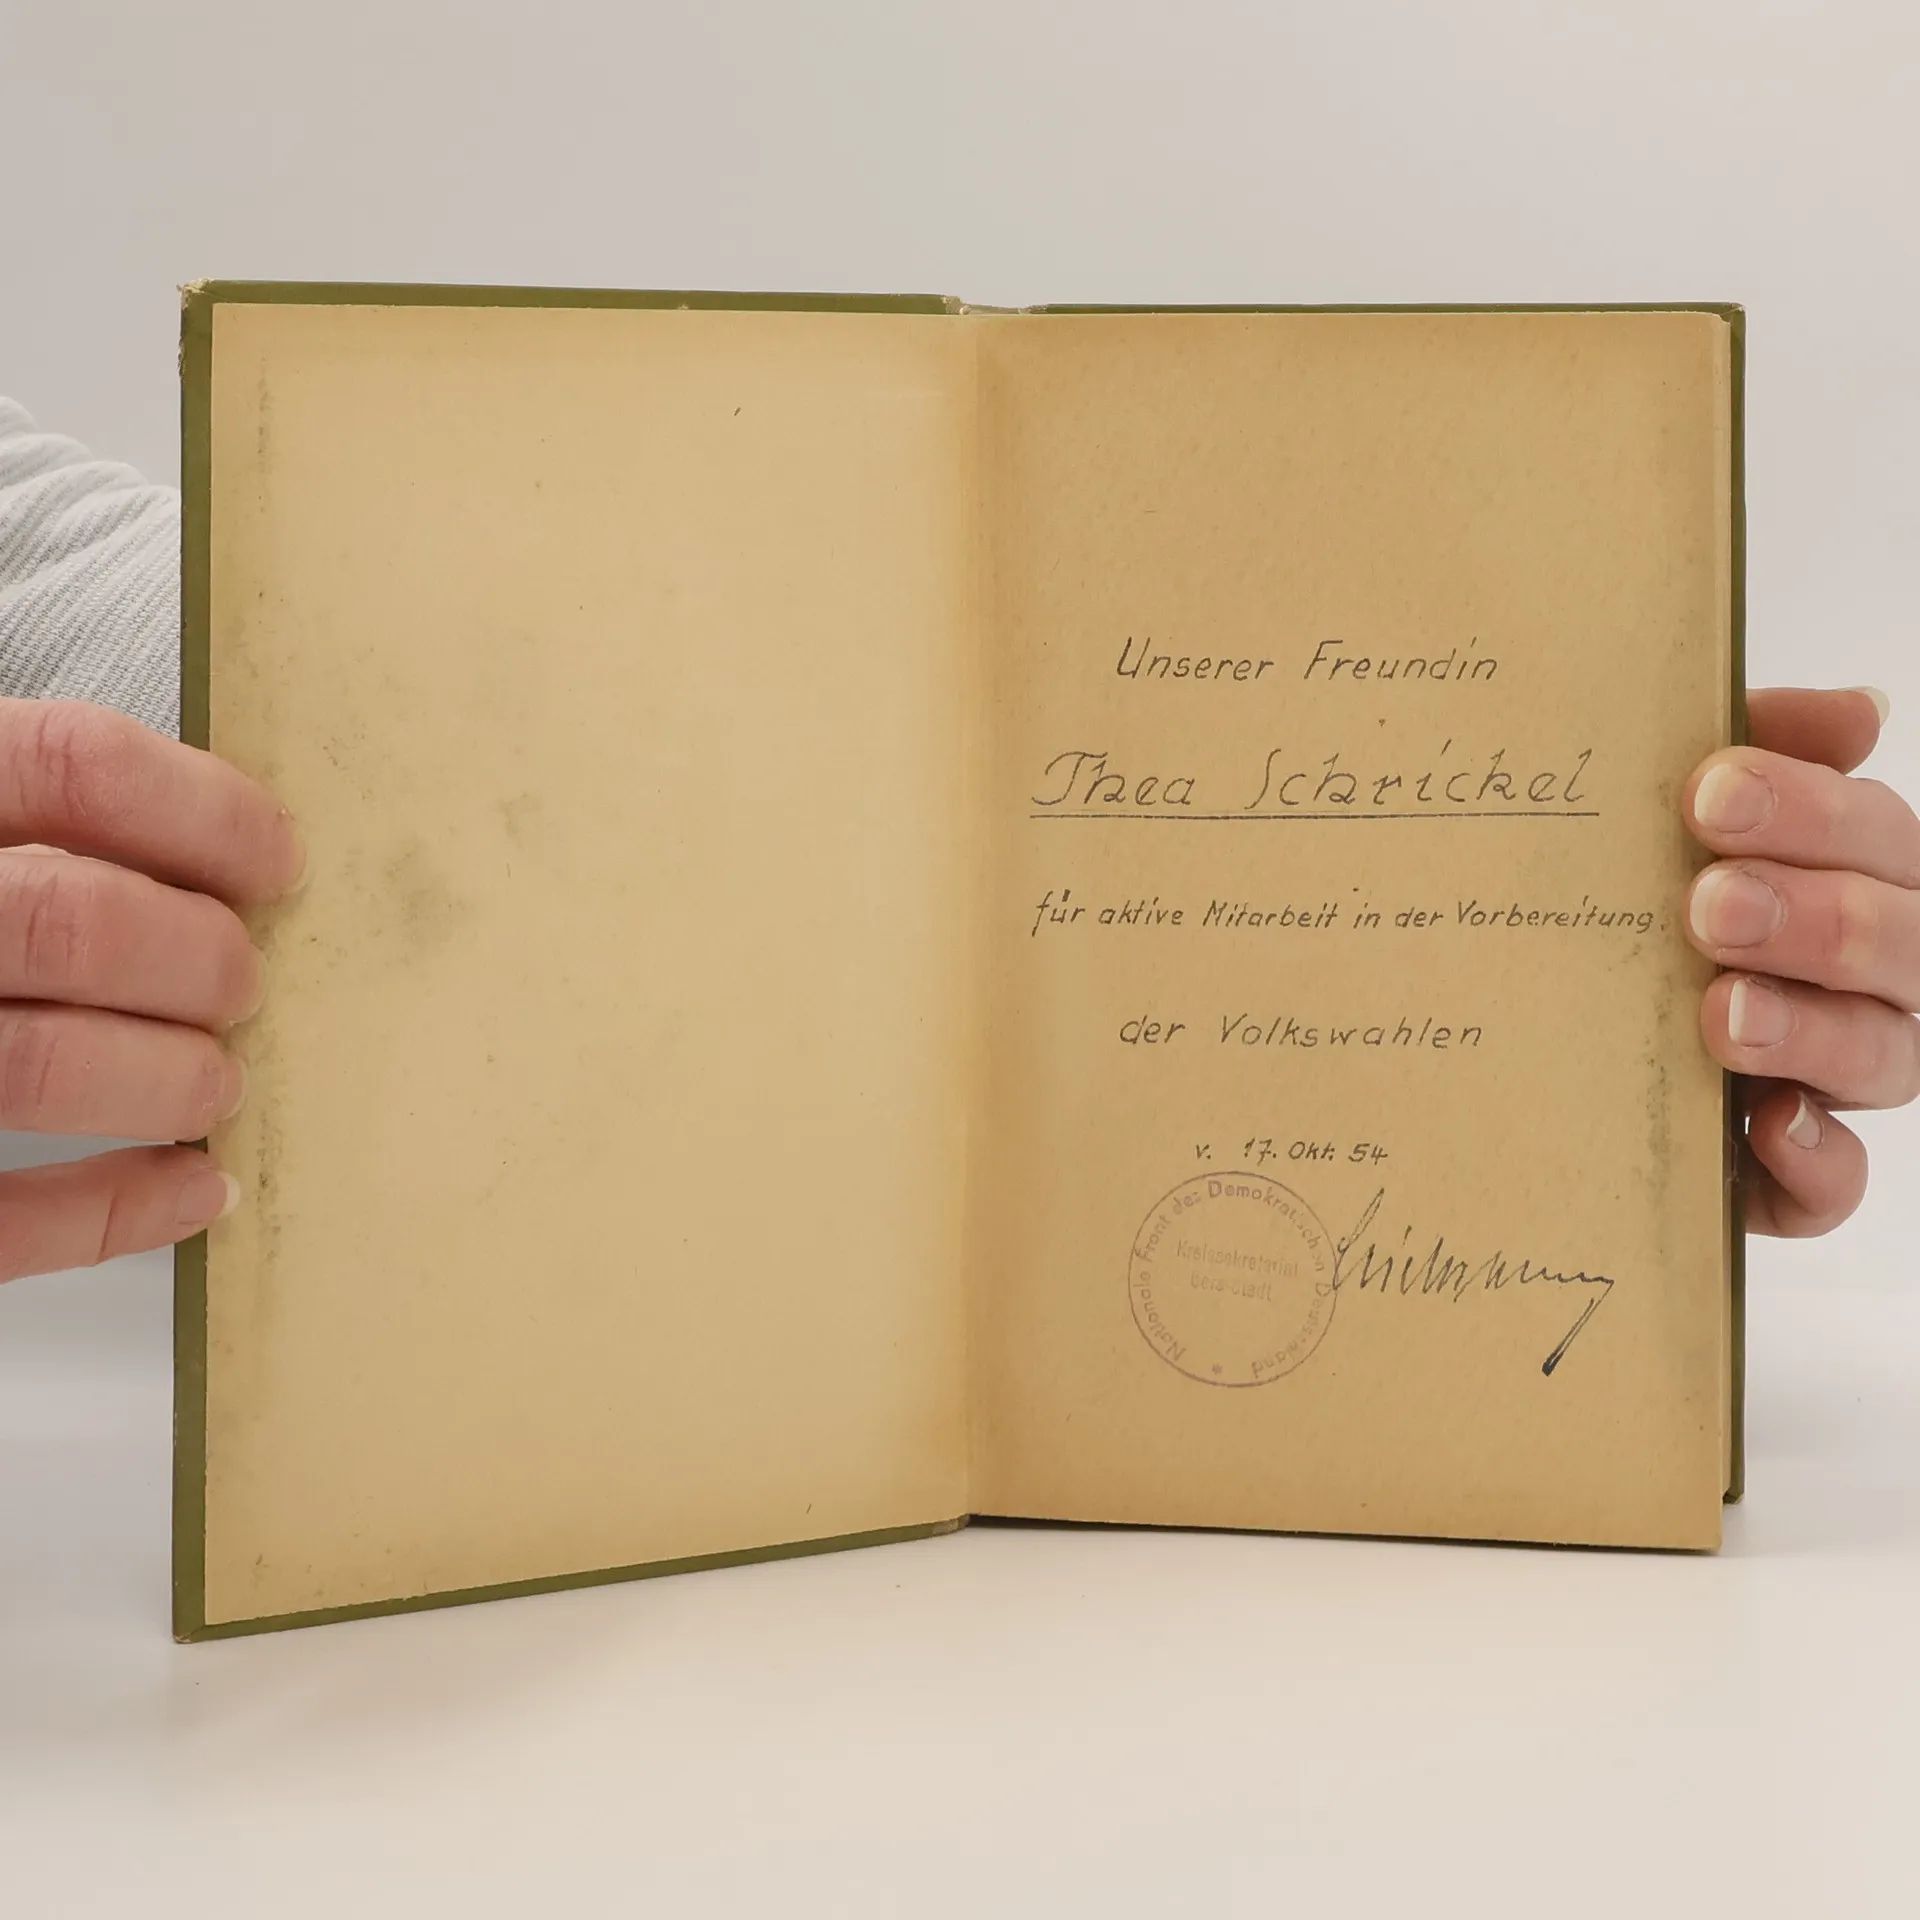 Unserer Freundin
Thea Schrickel
für aktive Mitarbeit in der Vorbereitung
der Volkswahlen
v. 17. Okt. 54
Nationale Front des Demokratischen Deutschland
Kreissekretariat
Gera-Stadt